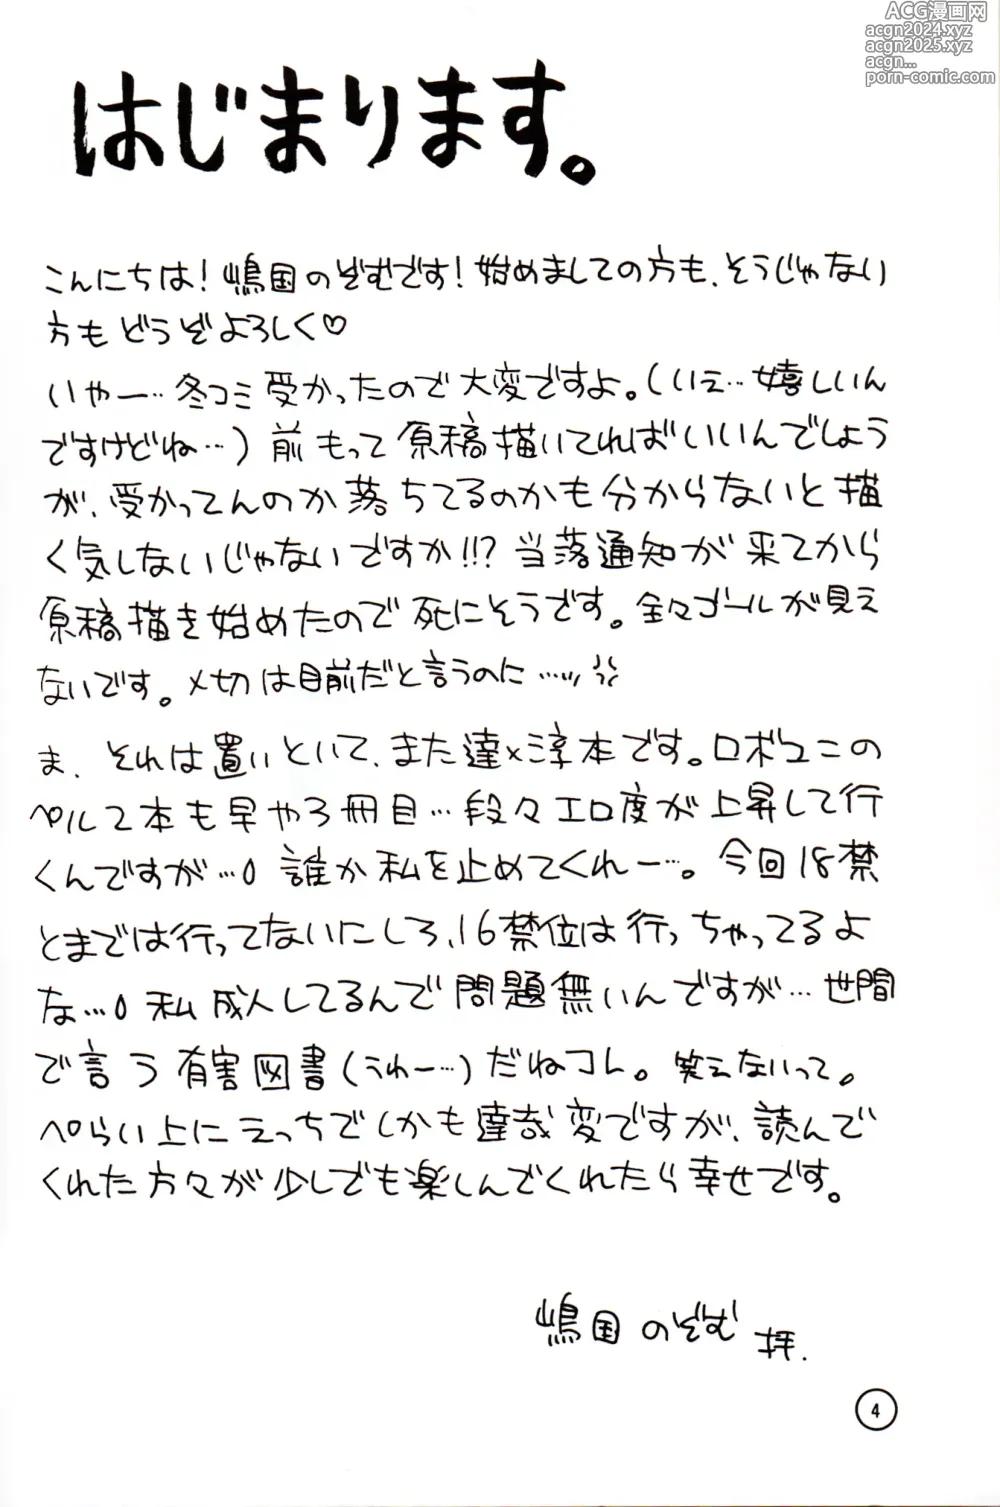 ACG漫画网
acgn2024.xyz
acgn2025.xyz
acgn...
porn-comic.com
はじまります。
こんにちは!嶋国のぞむです!始めましての方も、そうじゃない
方もどうぞよろしく♡
いやー…冬コミ受かったので大変ですよ。(いえ…嬉しいん
ですけどね…)前もって原稿描いてればいいんでしょう
が、受かってんのか落ちてるのかも分からないと描
く気しないじゃないですか!!?当落通知が来てから
原稿描き始めたので死にそうです。全々ゴールが見え
ないです。〆切は目前だと言うのに……
ま、それは置いといて、また達×淳本です。ロボユニの
ペルソ2本も早や3冊目…段々エロ度が上昇して行
くんですが…。誰か私を止めてくれー…。今回18禁
とまでは行ってないにしろ、16禁位は行っちゃってるよ
な…。私成人してるんで問題無いんですが…世間
で言う有害図書(うわー…)だねコレ。笑えないって。
ぺらい上にえっちでしかも達哉変ですが、読んで
くれた方々が少しでも楽しんでくれたら幸せです。
嶋国のぞむ 拝.
4